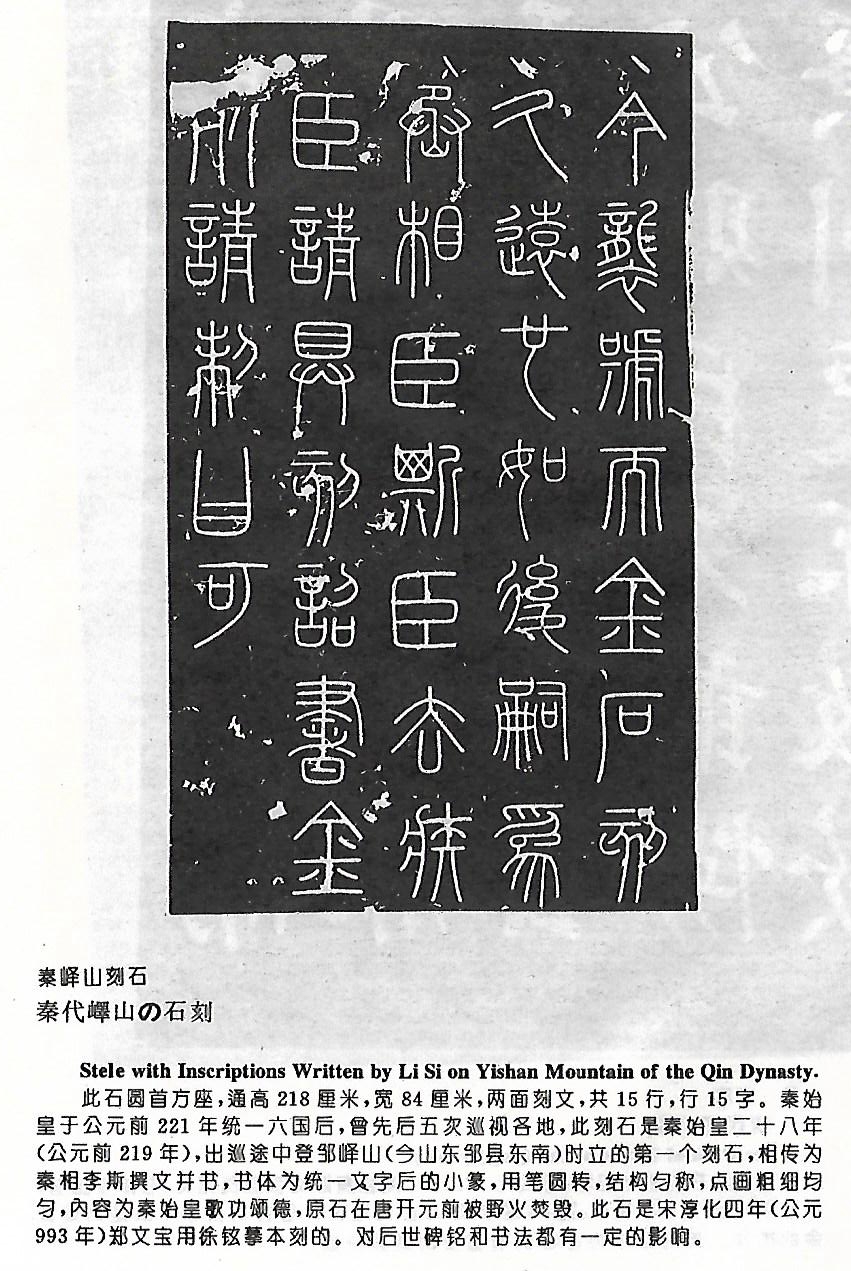 今襲號而金石刻
久遠也如後嗣為
丞相臣斯臣去疾
臣請具刻詔書金
死請制曰可
秦峄山刻石
秦代嶧山の石刻
Stele with Inscriptions Written by Li Si on Yishan Mountain of the Qin Dynasty.
此石圆首方座，通高 218 厘米，宽 84 厘米，两面刻文，共 15 行，行 15 字。秦始
皇于公元前 221 年统一六国后，曾先后五次巡视各地，此刻石是秦始皇二十八年
(公元前 219 年)，出巡途中登邹峄山(今山东邹县东南)时立的第一个刻石，相传为
秦相李斯撰文并书，书体为统一文字后的小篆，用笔圆转，结构匀称，点画粗细均
匀，内容为秦始皇歌功颂德，原石在唐开元前被野火焚毁。此石是宋淳化四年(公元
993 年)郑文宝用徐铉摹本刻的。对后世碑铭和书法都有一定的影响。